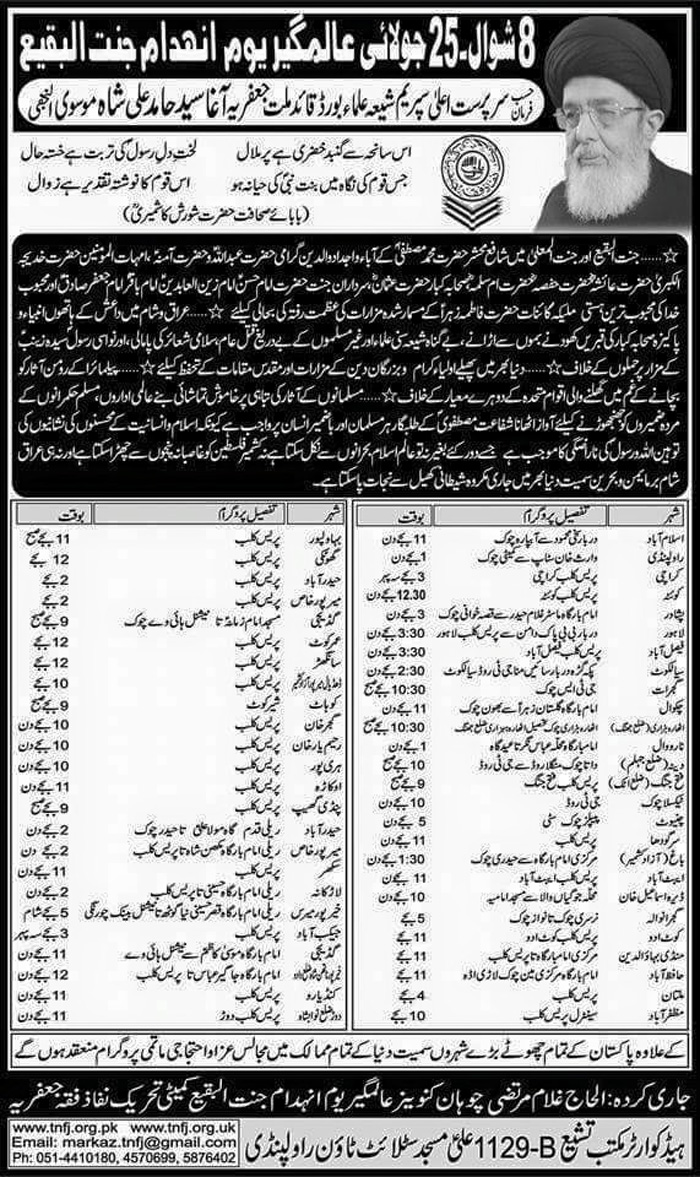 8 شوال۔25 جولائی عالمگیر یوم انہدام جنت البقیع
حسب فرمان سرپرست اعلیٰ سپریم شیعہ علماء بورڈ قائد ملت جعفریہ آغا سید حامد علی شاہ موسوی النجفی
اس سانحہ سے گنبد خضریٰ ہے پر ملال لخت دل رسولؐ کی تربت ہے خستہ حال
جس قوم کی نگاہ میں بنت نبیؐ کی حیا نہ ہو اس قوم کا نوشتہ تقدیر ہے زوال
(بابائے صحافت حضرت شورش کاشمیریؒ)
☆......جنت البقیع اور جنت المعلیٰ میں شافع محشر حضرت محمد مصطفیٰؐ کے آباء واجداد والدین گرامی حضرت عبداللہؑ و حضرت آمنہؑ، امہات المومنین حضرت خدیجہ
الکبریٰؑ حضرت عائشہؓ حضرت حفصہؓ حضرت ام سلمہؓ، صحابہ کبار حضرت عثمانؓ، سرداران جنت حضرت امام حسنؑ امام زین العابدینؑ امام باقرؑ امام جعفر صادقؑ اور محبوب
خدا کی محبوب ترین ہستی ملیکہ کائنات حضرت فاطمہ زہراؑ کے مسمار شدہ مزارات کی عظمت رفتہ کی بحالی کیلئے ☆......عراق و شام میں داعش کے ہاتھوں انبیاءؑ و
پاکیزہ صحابہ کبار کی قبریں کھودنے بموں سے اڑانے، بے گناہ شیعہ سنی علماء اور غیر مسلموں کے بے دریغ قتل عام، اسلامی شعائر کی پامالی، اور نواسی رسولؐ سیدہ زینبؑ
کے مزار پر حملوں کے خلاف☆......دنیا بھر میں پھیلے اولیاء کرام و بزرگان دین کے مزارات اور مقدس مقامات کے تحفظ کیلئے☆......پیلمائرا کے رومن آثار کو
بچانے کے غم میں گھلنے والی اقوام متحدہ کے دوہرے معیار کے خلاف☆......مسلمانوں کے آثار کی تباہی پر خاموش تماشائی بنے عالمی اداروں، مسلم حکمرانوں کے
مردہ ضمیروں کو جھنجھوڑنے کیلئے آواز اٹھانا شفاعت مصطفویؐ کے طلبگار ہر مسلمان اور باضمیر انسان پر واجب ہے کیونکہ اسلام و انسانیت کے محسنوں کی نشانیوں کی
توہین اللہ و رسولؐ کی ناراضگی کا موجب ہے جسے دور کئے بغیر نہ تو عالم اسلام بحرانوں سے نکل سکتا ہے نہ کشمیر فلسطین کو غاصبانہ پنجوں سے چھڑا سکتا ہے اور نہ ہی عراق
شام برما یمن و بحرین سمیت دنیا بھر میں جاری مکروہ شیطانی کھیل سے نجات پا سکتا ہے۔
شہر تفصیل پروگرام بوقت
اسلام آباد دربار سخی محمود سے آبپارہ چوک 11 بجے دن
راولپنڈی وارث خان سٹاپ سے کمیٹی چوک 1 بجے دن
کراچی پریس کلب کراچی 3 بجے سہ پہر
کوئٹہ پریس کلب کوئٹہ 12.30 بجے دن
پشاور امام بارگاہ ماسٹر غلام حیدر سے قصہ خوانی چوک 3 بجے دن
لاہور دربار بی بی پاک دامن سے پریس کلب لاہور 3:30 بجے دن
فیصل آباد پریس کلب فیصل آباد 3:30 بجے دن
سیالکوٹ پکہ گڑھ دربار سائیں منا جی ٹی روڈ سیالکوٹ 2:30 بجے دن
گجرات جی ٹی ایس چوک 10:30 بجے صبح
چکوال امام بارگاہ گلستان زہراؑ سے بھون چوک 11 بجے دن
اٹھارہ ہزاری (ضلع جھنگ) اٹھارہ ہزاری چوک تحصیل اٹھارہ ہزاری (ضلع جھنگ) 10:30 بجے صبح
نارووال امام بارگاہ محلہ عباس نگر تا عیدگاہ 1 بجے دن
دینہ (ضلع جہلم) داتا چوک منگلا روڈ سے جی ٹی روڈ 10 بجے صبح
فتح جنگ (ضلع اٹک) پریس کلب فتح جنگ 9 بجے صبح
ٹیکسلا چوک جی ٹی روڈ 10 بجے دن
چنیوٹ پیپلز چوک سٹی 5 بجے
سرگودھا پریس کلب 11 بجے دن
باغ (آزاد کشمیر) مرکزی امام بارگاہ سے حیدری چوک 1:30 بجے دن
ایبٹ آباد پریس کلب ایبٹ آباد 11 بجے دن
ڈیرہ اسماعیل خان محلہ جوگیاں والا سے مسجد امامیہ 10 بجے دن
گجرانوالہ نرسری چوک تا نواز چوک 5 بجے
کوٹ ادو پریس کلب کوٹ ادو 11 بجے
منڈی بہاؤالدین مرکزی امام بارگاہ تا پریس کلب 11 بجے
حافظ آباد امام بارگاہ مرکزی مین چوک لاری اڈہ 11 بجے
ملتان پریس کلب 4 بجے
مظفر آباد سینٹرل پریس کلب 10 بجے
شہر تفصیل پروگرام بوقت
بہاولپور پریس کلب 11 بجے صبح
گھوٹکی پریس کلب 12 بجے
حیدر آباد پریس کلب 2 بجے
میر پور خاص پریس کلب 2 بجے
گمبٹ مسجد امام زمانہؑ تا نیشنل ہائی وے چوک 9 بجے صبح
عمر کوٹ پریس کلب 12 بجے
سانگھڑ پریس کلب 12 بجے
پریس کلب 10 بجے
کوہاٹ شیر کوٹ 9 بجے صبح
گجر خان پریس کلب 10 بجے دن
رحیم یار خان پریس کلب 10 بجے دن
ہری پور پریس کلب 10 بجے دن
اوکاڑہ پریس کلب 11 بجے دن
پنڈی گھیب پریس کلب 9 بجے صبح
حیدر آباد ریلی قدم گاہ مولا علیؑ تا حیدر چوک 2 بجے دن
میر پور خاص ریلی امام بارگاہ مکھن شاہ تا پریس کلب 2 بجے دن
سکھر پریس کلب 11 بجے دن
لاڑکانہ ریلی امام بارگاہ حسینی تا پریس کلب 2 بجے دن
خیر پور میرس ریلی امام بارگاہ قصر حسینی نیا گوٹھ تا نیشنل بینک چورنگی 5 بجے شام
جیکب آباد پریس کلب 3 بجے سہ پہر
امام بارگاہ موسیٰ کاظمؑ سے نیشنل ہائی وے 11 بجے دن
امام بارگاہ جاگیر عباس تا پریس کلب 12 بجے دن
کنڈیارو پریس کلب 11 بجے دن
دوڑ ضلع نوابشاہ پریس کلب دوڑ 11 بجے دن
کے علاوہ پاکستان کے تمام چھوٹے بڑے شہروں سمیت دنیا کے تمام ممالک میں مجالس عزا و احتجاجی ماتمی پروگرام منعقد ہوں گے
جاری کردہ: الحاج غلام مرتضیٰ چوہان کنوینر عالمگیر یوم انہدام جنت البقیع کمیٹی تحریک نفاذ فقہ جعفریہ
ہیڈ کوارٹر مکتب تشیع 1129-B علی مسجد سٹلائٹ ٹاؤن راولپنڈی
www.tnfj.org.pk www.tnfj.org.uk
Email: markaz.tnfj@gmail.com
Ph: 051-4410180, 4570699, 5876402